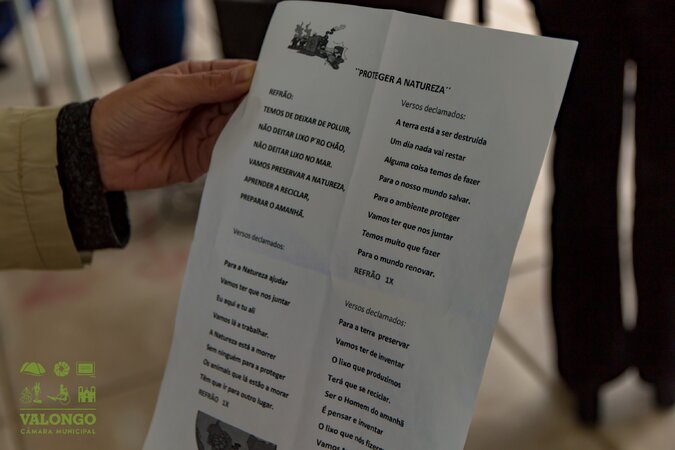 "PROTEGER A NATUREZA"
REFRÃO:
TEMOS DE DEIXAR DE POLUIR,
NÃO DEITAR LIXO P'RO CHÃO,
NÃO DEITAR LIXO NO MAR.
VAMOS PRESERVAR A NATUREZA,
APRENDER A RECICLAR,
PREPARAR O AMANHÃ.
Versos declamados:
Para a Natureza ajudar
Vamos ter que nos juntar
Eu aqui e tu ali
Vamos lá a trabalhar.
A Natureza está a morrer
Sem ninguém para a proteger
Os animais que lá estão a morar
Têm que ir para outro lugar.
REFRÃO 1X
Versos declamados:
A terra está a ser destruída
Um dia nada vai restar
Alguma coisa temos de fazer
Para o nosso mundo salvar.
Para o ambiente proteger
Vamos ter que nos juntar
Temos muito que fazer
Para o mundo renovar.
REFRÃO 1X
Versos declamados:
Para a terra preservar
Vamos ter de inventar
O lixo que produzimos
Terá que se reciclar.
Ser o Homem do amanhã
É pensar e inventar
O lixo que nós fizermos
Vamos ter
VALONGO
CÂMARA MUNICIPAL